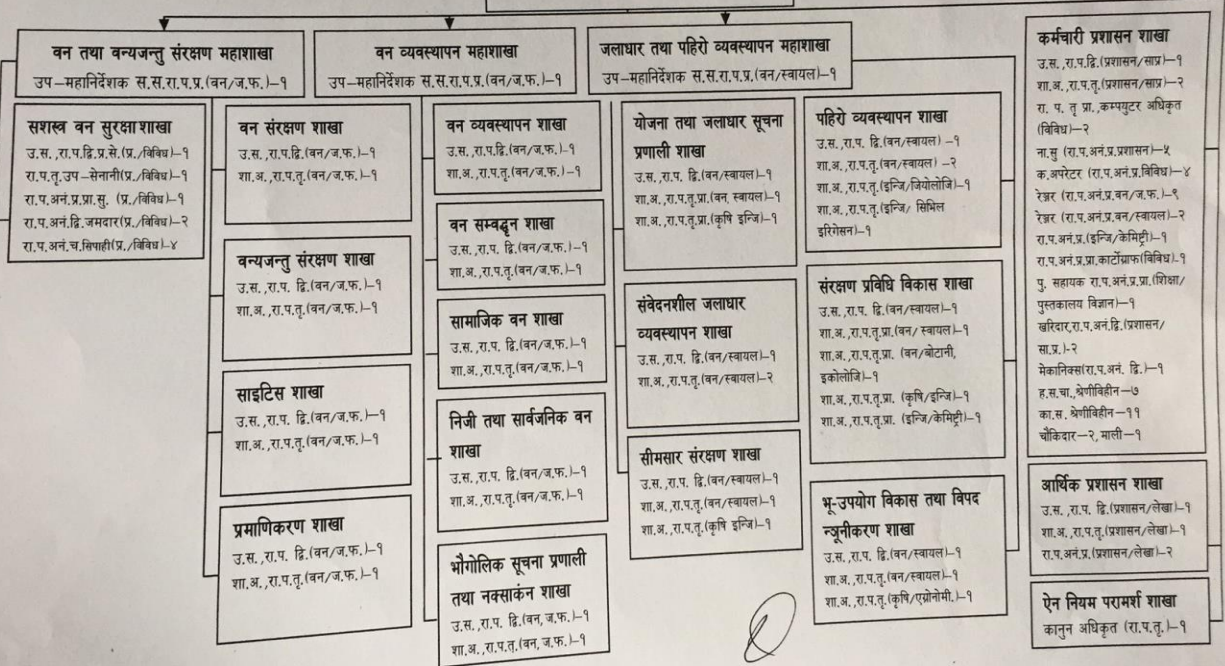 वन तथा वन्यजन्तु संरक्षण महाशाखा
उप-महानिर्देशक स.स.रा.प.प्र.(वन/ज.फ.)-१
सशस्त्र वन सुरक्षा शाखा
उ.स.,रा.प.द्वि.प्र.से.(प्र./विविध)-१
रा.प.तृ.उप-सेनानी(प्र./विविध)-१
रा.प.अनं.प्र.प्रा.सु. (प्र./विविध)-१
रा.प.अनं.द्वि.जमदार(प्र./विविध)-२
रा.प.अनं.च.सिपाही(प्र./विविध)-४
वन संरक्षण शाखा
उ.स.,रा.प.द्वि.(वन/ज.फ.)-१
शा.अ.,रा.प.तृ.(वन/ज.फ.)-१
वन्यजन्तु संरक्षण शाखा
उ.स.,रा.प. द्वि.(वन/ज.फ.)-१
शा.अ.,रा.प.तृ.(वन/ज.फ.)-१
साइटिस शाखा
उ.स.,रा.प. द्वि.(वन/ज.फ.)-१
शा.अ.,रा.प.तृ.(वन/ज.फ.)-१
प्रमाणिकरण शाखा
उ.स.,रा.प. द्वि.(वन/ज.फ.)-१
शा.अ.,रा.प.तृ.(वन/ज.फ.)-१
वन व्यवस्थापन महाशाखा
उप-महानिर्देशक स.स.रा.प.प्र.(वन/ज.फ.)-१
वन व्यवस्थापन शाखा
उ.स.,रा.प.द्वि.(वन/ज.फ.)-१
शा.अ.,रा.प.तृ.(वन/ज.फ.)-१
वन सम्वर्द्धन शाखा
उ.स.,रा.प. द्वि.(वन/ज.फ.)-१
शा.अ.,रा.प.तृ.(वन/ज.फ.)-१
सामाजिक वन शाखा
उ.स.,रा.प. द्वि.(वन/ज.फ.)-१
शा.अ.,रा.प.तृ.(वन/ज.फ.)-१
निजी तथा सार्वजनिक वन
शाखा
उ.स.,रा.प. द्वि.(वन/ज.फ.)-१
शा.अ.,रा.प.तृ.(वन/ज.फ.)-१
भौगोलिक सूचना प्रणाली
तथा नक्साकंन शाखा
उ.स.,रा.प. द्वि.(वन,ज.फ.)-१
शा.अ.,रा.प.तृ.(वन,ज.फ.)-१
जलाधार तथा पहिरो व्यवस्थापन महाशाखा
उप-महानिर्देशक स.स.रा.प.प्र.(वन/स्वायल)-१
योजना तथा जलाधार सूचना
प्रणाली शाखा
उ.स.,रा.प. द्वि.(वन/स्वायल)-१
शा.अ.,रा.प.तृ.प्रा.(वन, स्वायल)-१
शा.अ.,रा.प.तृ.प्रा.(कृषि इन्जि)-१
संवेदनशील जलाधार
व्यवस्थापन शाखा
उ.स.,रा.प. द्वि.(वन/स्वायल)-१
शा.अ.,रा.प.तृ.(वन/स्वायल)-२
सीमसार संरक्षण शाखा
उ.स.,रा.प. द्वि.(वन/स्वायल)-१
शा.अ.,रा.प.तृ.(वन/स्वायल)-१
शा.अ.,रा.प.तृ.(कृषि इन्जि)-१
पहिरो व्यवस्थापन शाखा
उ.स.,रा.प. द्वि.(वन/स्वायल) -१
शा.अ.,रा.प.तृ.(वन/स्वायल) -२
शा.अ.,रा.प.तृ.(इन्जि/जियोलोजि)-१
शा.अ.,रा.प.तृ.(इन्जि/ सिभिल
इरिगेसन)-१
संरक्षण प्रविधि विकास शाखा
उ.स.,रा.प. द्वि.(वन/स्वायल)-१
शा.अ.,रा.प.तृ.प्रा.(वन/ स्वायल)-१
शा.अ.,रा.प.तृ.प्रा. (वन/बोटानी,
इकोलोजि)-१
शा.अ.,रा.प.तृ.प्रा. (कृषि/इन्जि)-१
शा.अ.,रा.प.तृ.प्रा. (इन्जि/केमिष्ट्री)-१
भू-उपयोग विकास तथा विपद
न्यूनीकरण शाखा
उ.स.,रा.प. द्वि.(वन/स्वायल)-१
शा.अ.,रा.प.तृ.(वन/स्वायल)-१
शा.अ.,रा.प.तृ.(कृषि/एग्रोनोमी.)-१
कर्मचारी प्रशासन शाखा
उ.स.,रा.प.द्वि.(प्रशासन/साप्र)-१
शा.अ.,रा.प.तृ.(प्रशासन/साप्र)-२
रा. प. तृ प्रा.,कम्पयुटर अधिकृत
(विविध)-२
ना.सु (रा.प.अनं.प्र.प्रशासन)-५
क.अपरेटर (रा.प.अनं.प्र.विविध)-४
रेञ्जर (रा.प.अनं.प्र.वन/ज.फ.)-९
रेञ्जर (रा.प.अनं.प्र.वन/स्वायल)-२
रा.प.अनं.प्र.(इन्जि/केमिष्ट्री)-१
रा.प.अनं.प्र.प्रा.कार्टोग्राफ(विविध)-१
पु. सहायक रा.प.अनं.प्र.प्रा.(शिक्षा/
पुस्तकालय विज्ञान)-१
खरिदार,रा.प.अनं.द्वि.(प्रशासन/
सा.प्र.)-२
मेकानिक्स(रा.प.अनं. द्वि.)-१
ह.स.चा.,श्रेणीविहीन-७
का.स. श्रेणीविहीन-११
चौकिदार-२, माली-१
आर्थिक प्रशासन शाखा
उ.स.,रा.प. द्वि.(प्रशासन/लेखा)-१
शा.अ.,रा.प.तृ.(प्रशासन/लेखा)-१
रा.प.अनं.प्र.(प्रशासन/लेखा)-२
ऐन नियम परामर्श शाखा
कानुन अधिकृत (रा.प.तृ.)-१